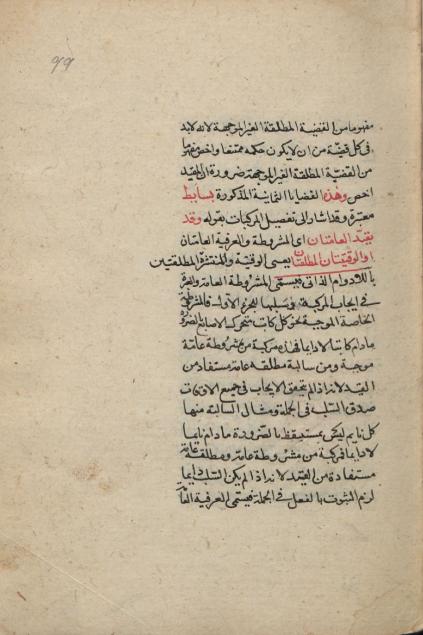 ٩٩
مفهوما من القضية المطلقة الغير الموجهة لانه لابد
فى كل قضية من ان لا يكون حكمه ممتنعا واخص مفهوما
من القضية المطلقة الغير الموجهة ضرورة ان المقيد
اخص وهذه القضايا الثمانية المذكورة بسايط
معتبرة وقد اشار الى تفصيل المركبات بقوله وقد
يقيد العامتان اى المشروطة والعرفية العامتان
او الوقتيتان المطلقتان يعنى الوقتية والمنتشرة المطلقتين
باللادوام الذاتى فيسمى المشروطة العامة والعبرة
فى ايجاب المركبة وسلبها للجزء الاول فالمشروطة
الخاصة الموجبة نحو كل كاتب متحرك الاصابع بالضرورة
مادام كاتبا لا دايما فهذه مركبة من مشروطة عامة
موجبة ومن سالبة مطلقة عامة مستفاد من
القيد لانه اذا لم يتحقق الايجاب فى جميع الاوقات
صدق السلب فى الجملة ومثال السالبة منها
كل نايم ليس بمستيقظ بالضرورة مادام نايما
لا دايما فمركبة من مشروطة عامة ومطلقة عامة
مستفادة من القيد لانه اذا لم يكن السلب دايما
لزم الثبوت بالفعل فى الجملة فيسمى العرفية العا